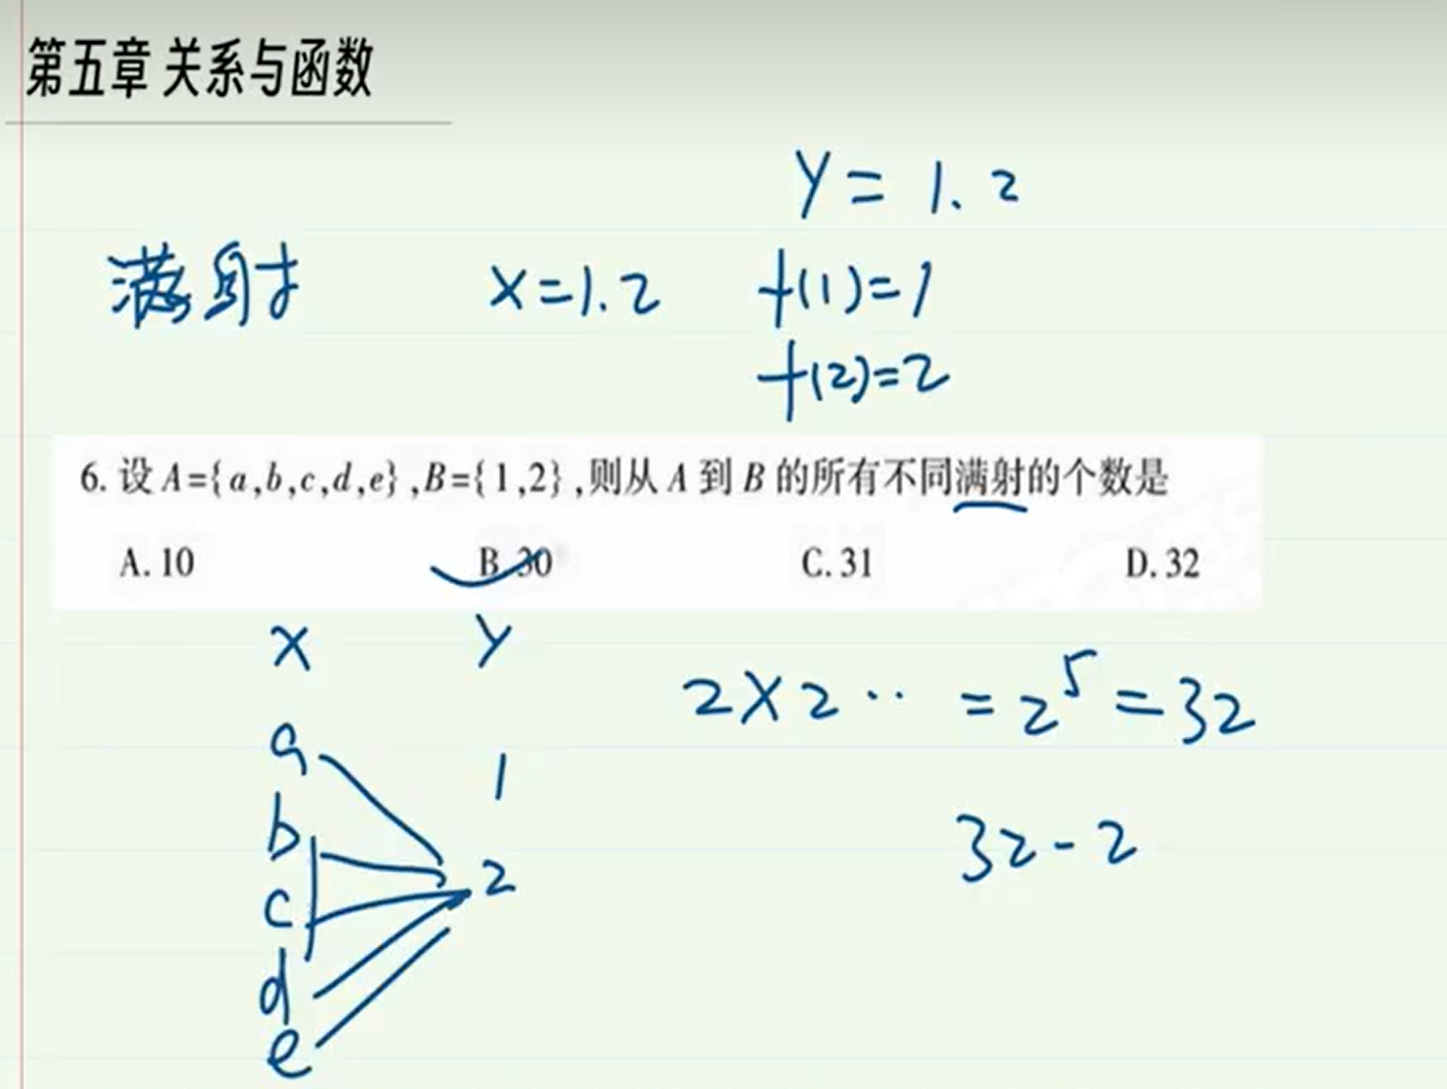 第五章 关系与函数
y = 1. 2
满射 x=1.2 f(1)=1
f(2)=2
6. 设 A={a,b,c,d,e},B={1,2},则从 A 到 B 的所有不同满射的个数是
A. 10 B. 30 C. 31 D. 32
x y
2×2·· = 2⁵ = 32
a
1
b
32-2
2
c
d
e